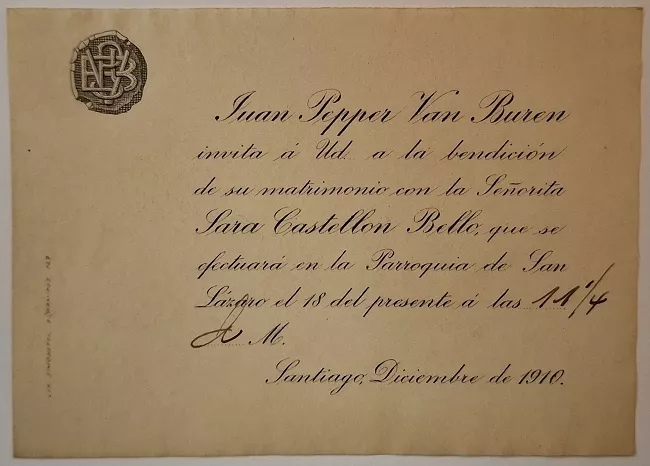 Juan Pepper Van Buren
invita á Ud. a la bendición
de su matrimonio con la Señorita
Sara Castellon Bello, que se
efectuará en la Parroquia de San
Lázaro el 18 del presente á las 11 1/4
A M.
Santiago, Diciembre de 1910.